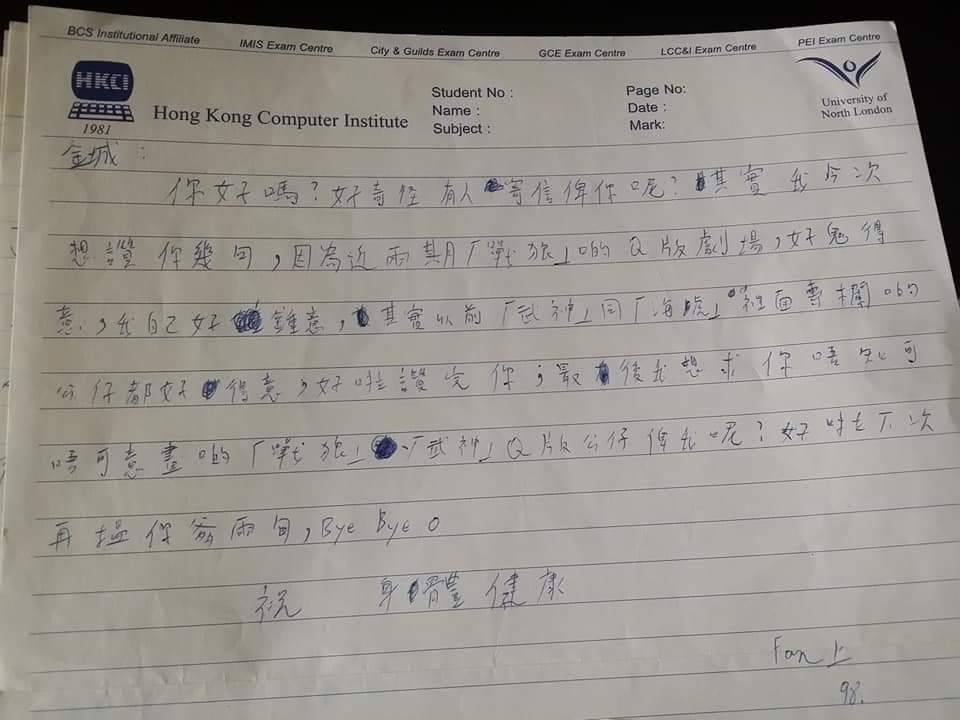 BCS Institutional Affiliate IMIS Exam Centre City & Guilds Exam Centre GCE Exam Centre LCC&I Exam Centre PEI Exam Centre
HKCI
1981
Hong Kong Computer Institute
Student No :
Name :
Subject :
Page No:
Date :
Mark:
University of
North London
金城：
你好嗎？好奇怪有人寄信俾你呢？其實我今次
想讚你幾句，因為近兩期「戰狼」啲Q版劇場，好鬼得
意，我自己好鍾意，其實以前「武神」同「海虎」裡面專欄啲
公仔都好得意，好啦讚完你，最後我想求你唔知可
唔可意畫啲「戰狼」、「武神」Q版公仔俾我呢？好啦下次
再搵你兩句，Bye Bye。
祝 身體健康
Fan 上
98.